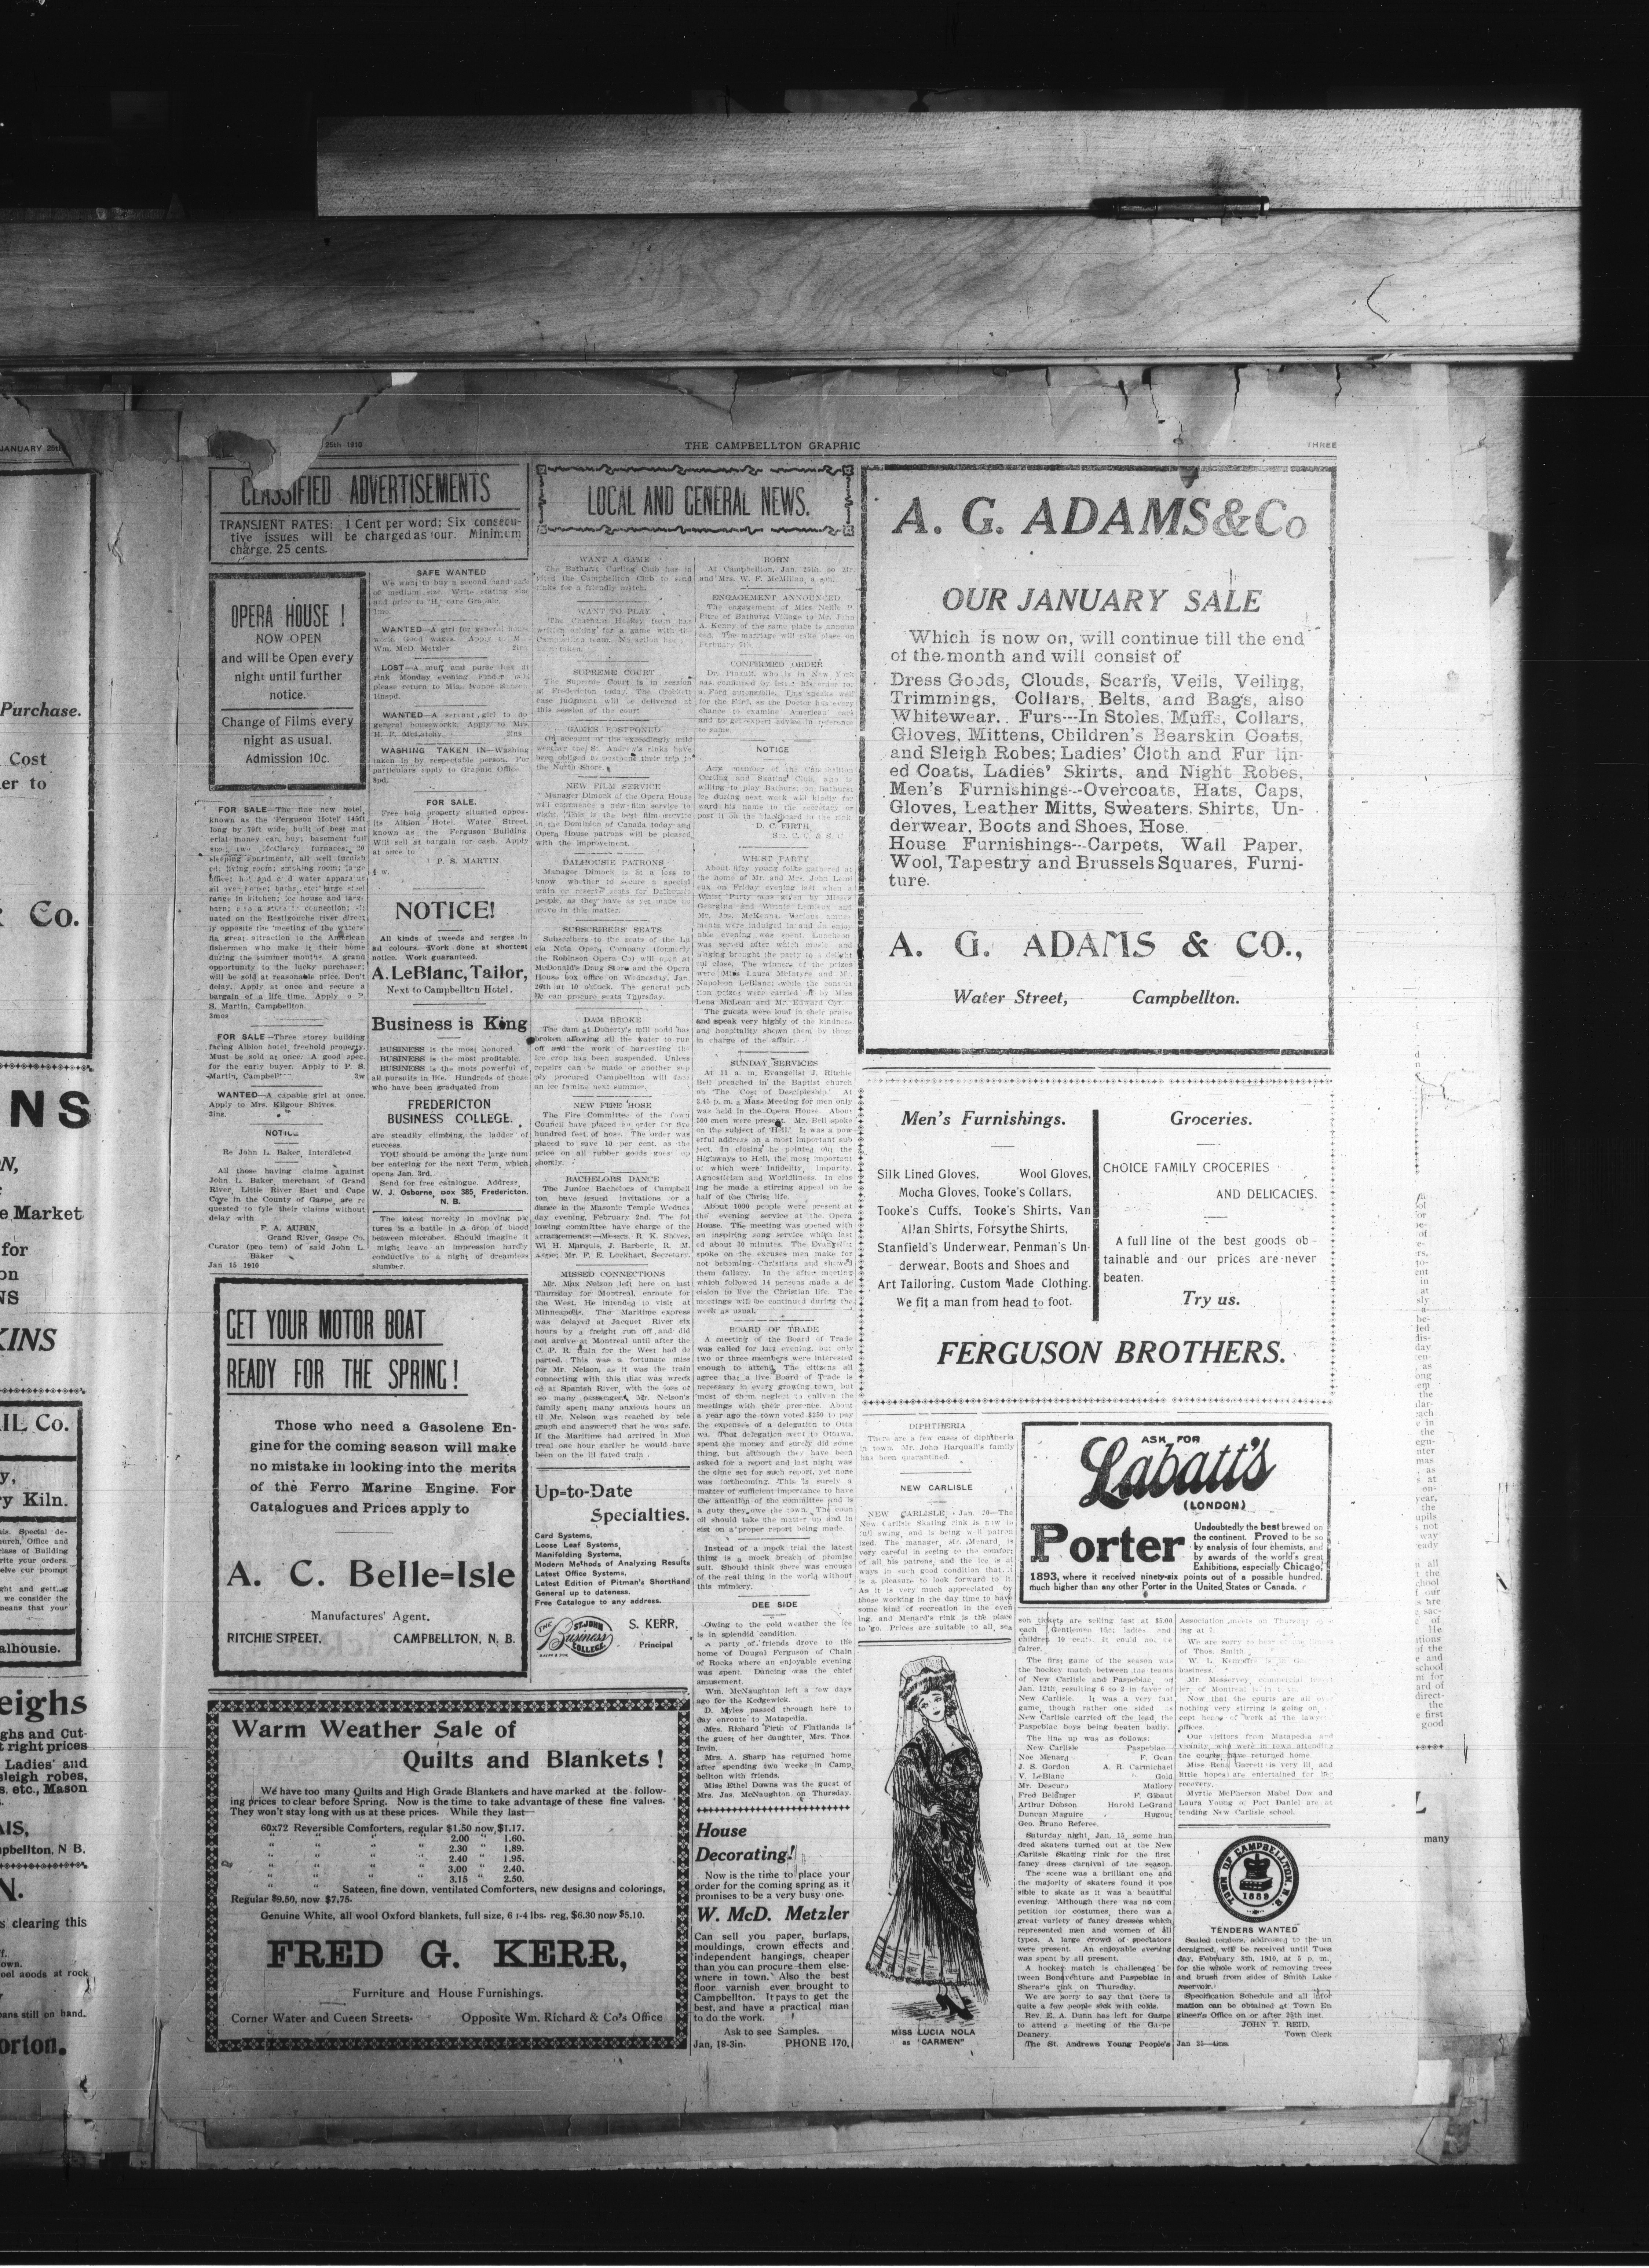 25th 1910
THE CAMPBELLTON GRAPHIC
THREE
CLASSIFIED ADVERTISEMENTS
TRANSIENT RATES: 1 Cent per word; Six consecu-
tive issues will be charged as four. Minimum
charge, 25 cents.
OPERA HOUSE !
NOW OPEN
and will be Open every
night until further
notice.
Change of Films every
night as usual.
Admission 10c.
FOR SALE—The fine new hotel,
known as the 'Ferguson Hotel' 145ft
long by 70ft wide, built of best mat
erial money can buy; basement full
sleeping apartments, all well furnish
ed; living room; smoking room; large
range in kitchen; ice house and large
uated on the Restigouche river direct
ly opposite the 'meeting of the waters'
fishermen who make it their home
during the summer months. A grand
opportunity to the lucky purchaser;
will be sold at reasonable price. Don't
delay. Apply at once and secure a
bargain of a life time. Apply
S. Martin, Campbellton.
3mos
FOR SALE—Three storey building
facing Albion hotel, freehold property.
Must be sold at once. A good spec.
for the early buyer. Apply to P. S.
Martin, Campbell 2w
WANTED—A capable girl at once.
Apply to Mrs. Kilgour Shives.
3ins.
NOTICE
Re John L. Baker, Interdicted
All those having claims against
John L. Baker, merchant of Grand
River, Little River East and Cape
Cove in the County of Gaspe, are re
quested to fyle their claims without
delay with
F. A. AUBIN,
Grand River, Gaspe Co.
Curator (pro tem) of said John L.
Baker
Jan 15 1910
SAFE WANTED
We want to buy a second hand safe
of medium size. Write stating size
and price to 'H,' care Graphic.
WANTED—A girl for general house
work. Good wages. Apply to M
Wm. McD. Metzler
LOST—A muff and purse
rink Monday evening. Finder
please return to Miss Ivonne
WANTED—A servant girl to do
general housework. Apply to Mrs.
H. P. McLatchy. 2ins
WASHING TAKEN IN—Washing
taken in by respectable person. For
particulars apply to Graphic Office.
FOR SALE.
Free hold property situated oppos-
ite Albion Hotel, Water Street,
known as the Ferguson Building
Will sell at bargain for cash. Apply
at once to
P. S. MARTIN
NOTICE!
All kinds of tweeds and serges in
ad colours. Work done at shortest
notice. Work guaranteed.
A. LeBlanc, Tailor,
Next to Campbellton Hotel.
Business is King
BUSINESS is the most honored.
BUSINESS is the most profitable.
BUSINESS is the mots powerful of
all pursuits in life. Hundreds of those
who have been graduated from
FREDERICTON
BUSINESS COLLEGE.
are steadily climbing the ladder of
success.
YOU should be among the large num
ber entering for the next Term, which
opens Jan. 3rd.
Send for free catalogue. Address,
W. J. Osborne, Box 385, Fredericton.
N. B.
The latest novelty in moving pic
tures is a battle in a drop of blood
between microbes. Should imagine it
might leave an impression hardly
conductive to a night of dreamless
slumber.
GET YOUR MOTOR BOAT
READY FOR THE SPRING!
Those who need a Gasolene En-
gine for the coming season will make
no mistake in looking into the merits
of the Ferro Marine Engine. For
Catalogues and Prices apply to
A. C. Belle=Isle
Manufactures' Agent.
RITCHIE STREET, CAMPBELLTON, N. B.
Warm Weather Sale of
Quilts and Blankets !
We have too many Quilts and High Grade Blankets and have marked at the follow-
ing prices to clear before Spring. Now is the time to take advantage of these fine values.
They won't stay long with us at these prices. While they last—
60x72 Reversible Comforters, regular $1.50 now $1.17.
" " " " 2.00 " 1.60.
" " " " 2.30 " 1.89.
" " " " 2.40 " 1.95.
" " " " 3.00 " 2.40.
" " " " 3.15 " 2.50.
Sateen, fine down, ventilated Comforters, new designs and colorings,
Regular $9.50, now $7.75.
Genuine White, all wool Oxford blankets, full size, 6 1-4 lbs. reg, $6.30 now $5.10.
FRED G. KERR,
Furniture and House Furnishings.
Corner Water and Cueen Streets. Opposite Wm. Richard & Co's Office
LOCAL AND GENERAL NEWS.
WANT A GAME
The Bathurst Curling Club has in
vited the Campbellton Club to send
rinks for a friendly match.
WANT TO PLAY
The Chatham Hockey team has
written asking for a game with the
SUPREME COURT
The Supreme Court is in session
at Fredericton today. The Crockett
case judgment will be delivered at
this session of the court
GAMES POSTPONED
On account of the exceedingly mild
weather the St. Andrew's rinks have
been obliged to postpone their trip to
the North Shore.
NEW FILM SERVICE
Manager Dimock of the Opera House
will commence a new film service to
night. This is the best film service
in the Dominion of Canada today and
Opera House patrons will be pleased
with the improvement.
DALHOUSIE PATRONS
Manager Dimock is at a loss to
know whether to secure a special
train or reserve seats for Dalhousie
people, as they have as yet made no
move in this matter.
SUBSCRIBERS' SEATS
Subscribers to the seats of the Lu
cia Nola Opera Company (formerly
the Robinson Opera Co) will open at
McDonald's Drug Store and the Opera
House box office on Wednesday, Jan.
26th at 10 o'clock. The general pub
lic can procure seats Thursday.
DAM BROKE
The dam at Doherty's mill pond has
broken allowing all the water to run
off and the work of harvesting the
ice crop has been suspended. Unless
repairs can be made or another sup
ply procured Campbellton will face
an ice famine next summer.
NEW FIRE HOSE
The Fire Committee of the Town
Council have placed an order for five
hundred feet of hose. The order was
placed to save 10 per cent. as the
price on all rubber goods goes up
shortly.
BACHELORS DANCE
The Junior Bachelors of Campbell
ton have issued invitations for a
dance in the Masonic Temple Wednes
day evening, February 2nd. The fol
lowing committee have charge of the
arrangements:—Messrs. R. K. Shives,
W. H. Marquis, J. Barberie, R. M.
Aspe; Mr. F. E. Lockhart, Secretary.
MISSED CONNECTIONS
Mr. Max Nelson left here on last
Thursday for Montreal, enroute for
the West. He intended to visit at
Minneapolis. The Maritime express
was delayed at Jacquet River six
hours by a freight run off and did
not arrive at Montreal until after the
C. P. R. train for the West had de
parted. This was a fortunate miss
for Mr. Nelson, as it was the train
connecting with this that was wreck
ed at Spanish River, with the loss of
so many passengers. Mr. Nelson's
family spent many anxious hours un
til Mr. Nelson was reached by tele
graph and answered that he was safe.
If the Maritime had arrived in Mon
treal one hour earlier he would have
been on the ill fated train.
Up=to-Date
Specialties.
Card Systems,
Loose Leaf Systems,
Manifolding Systems,
Modern Methods of Analyzing Results
Latest Office Systems,
Latest Edition of Pitman's Shorthand
General up to dateness.
Free Catalogue to any address.
THE
ST. JOHN
Business
COLLEGE
S. KERR,
Principal
BORN
At Campbellton, Jan. 25th, to Mr.
and Mrs. W. F. McMillan, a son.
ENGAGEMENT ANNOUNCED
The engagement of Miss Nellie
of Bathurst Village to Mr. John
A. Kenny of the same place is announ
ced. The marriage will take place on
February 7th.
CONFIRMED ORDER
Dr. Pinault, who is in New York
has confirmed by letter his order for
a Ford automobile. This speaks well
for the Ford, as the Doctor has every
chance to examine American cars
and to get expert advice in reference
to same.
NOTICE
Any member of the Campbellton
Curling and Skating Club, who is
willing to play Bathurst on Bathurst
ice during next week will kindly for
ward his name to the secretary or
post it on the blackboard in the rink.
D. C. FIRTH
WHIST PARTY
About fifty young folks gathered at
the home of Mr. and Mrs. John Lemi
eux on Friday evening last when a
Whist Party was given by Misses
Georgina and Winnie Lemieux and
Mr. Jas. McKenna. Various amuse
ments were indulged in and an enjoy
able evening was spent. Luncheon
was served after which music and
singing brought the party to a delight
ful close. The winners of the prizes
were Miss Laura McIntyre and Mr.
Napoleon LeBlanc; while the consola
tion prizes were carried off by Miss
Lena McLean and Mr. Edward Cyr.
The guests were loud in their praise
and speak very highly of the kindness
and hospitality shown them by those
in charge of the affair.
SUNDAY SERVICES
At 11 a. m. Evangelist J. Ritchie
Bell preached in the Baptist church
on 'The Cost of Discipleship.' At
3.45 p. m. a Mass Meeting for men only
was held in the Opera House. About
500 men were present. Mr. Bell spoke
on the subject of 'Hell.' It was a pow
erful address on a most important sub
ject. In closing he pointed out the
Highways to Hell, the most important
of which were Infidelity, Impurity,
Agnosticism and Worldliness. In clos
ing he made a stirring appeal on be
half of the Christ life.
About 1000 people were present at
the evening service at the Opera
House. The meeting was opened with
an inspiring song service which last
ed about 30 minutes. The Evangelist
spoke on the excuses men make for
not becoming Christians and showed
them fallacy. In the after meeting
which followed 14 persons made a de
cision to live the Christian life. The
meetings will be continued during the
week as usual.
BOARD OF TRADE
A meeting of the Board of Trade
was called for last evening, but only
two or three members were interested
enough to attend. The citizens all
agree that a live Board of Trade is
necessary in every growing town, but
most of them neglect to enliven the
meetings with their presence. About
a year ago the town voted $250 to pay
the expenses of a delegation to Otta
wa. That delegation went to Ottawa,
spent the money and surely did some
thing, but although they have been
asked for a report and last night was
the time set for such report, yet none
was forthcoming. This is surely a
matter of sufficient importance to have
the attention of the committee and is
a duty they owe the town. The coun
cil should take the matter up and in
sist on a proper report being made.
Instead of a mock trial the latest
thing is a mock breach of promise
suit. Should think there was enough
of the real thing in the world without
this mimicry.
DEE SIDE
Owing to the cold weather the ice
is in splendid condition.
A party of friends drove to the
home of Dougal Ferguson of Chain
of Rocks where an enjoyable evening
was spent. Dancing was the chief
amusement.
Wm. McNaughton left a few days
ago for the Kedgewick.
D. Myles passed through here to
day enroute to Matapedia.
Mrs. Richard Firth of Flatlands is
the guest of her daughter, Mrs. Thos.
Irvin.
Mrs. A. Sharp has returned home
after spending two weeks in Camp
bellton with friends.
Miss Ethel Downs was the guest of
Mrs. Jas. McNaughton on Thursday.
House
Decorating!
Now is the time to place your
order for the coming spring as it
promises to be a very busy one.
W. McD. Metzler
Can sell you paper, burlaps,
mouldings, crown effects and
independent hangings, cheaper
than you can procure them else-
where in town. Also the best
floor varnish ever brought to
Campbellton. It pays to get the
best, and have a practical man
to do the work.
Ask to see Samples.
Jan, 18-3in. PHONE 170.
A. G. ADAMS & Co
OUR JANUARY SALE
Which is now on, will continue till the end
of the month and will consist of
Dress Goods, Clouds, Scarfs, Veils, Veiling,
Trimmings, Collars, Belts, and Bags, also
Whitewear. Furs---In Stoles, Muffs, Collars,
Gloves, Mittens, Children's Bearskin Coats,
and Sleigh Robes; Ladies' Cloth and Fur lin-
ed Coats, Ladies' Skirts, and Night Robes,
Men's Furnishings---Overcoats, Hats, Caps,
Gloves, Leather Mitts, Sweaters, Shirts, Un-
derwear, Boots and Shoes, Hose.
House Furnishings---Carpets, Wall Paper,
Wool, Tapestry and Brussels Squares, Furni-
ture.
A. G. ADAMS & CO.,
Water Street, Campbellton.
Men's Furnishings.
Silk Lined Gloves, Wool Gloves,
Mocha Gloves, Tooke's Collars,
Tooke's Cuffs, Tooke's Shirts, Van
Allan Shirts, Forsythe Shirts,
Stanfield's Underwear, Penman's Un-
derwear, Boots and Shoes and
Art Tailoring, Custom Made Clothing.
We fit a man from head to foot.
Groceries.
CHOICE FAMILY CROCERIES
AND DELICACIES.
A full line of the best goods ob-
tainable and our prices are never
beaten.
Try us.
FERGUSON BROTHERS.
DIPHTHERIA
There are a few cases of diphtheria
in town. Mr. John Harquail's family
has been quarantined.
NEW CARLISLE
NEW CARLISLE, Jan. 20—The
New Carlisle Skating rink is now in
full swing, and is being well patron
ized. The manager, Mr. Menard, is
very careful in seeing to the comfort
of all his patrons, and the ice is at
ways in such good condition that it
is a pleasure to look forward to it.
As it is very much appreciated by
those working in the day time to have
some kind of recreation in the even
ing, and Menard's rink is the place
to go. Prices are suitable to all, sea
MISS LUCIA NOLA
as "CARMEN"
ASK FOR
Labatt's
(LONDON)
Porter
Undoubtedly the best brewed on
the continent. Proved to be so
by analysis of four chemists, and
by awards of the world's great
Exhibitions, especially Chicago,
1893, where it received ninety-six points out of a possible hundred,
much higher than any other Porter in the United States or Canada.
son tickets are selling fast at $5.00
each. Gentlemen 15c; ladies and
children 10 cents. It could not be
fairer.
The first game of the season was
the hockey match between the teams
of New Carlisle and Paspebiac, on
Jan. 12th, resulting 6 to 2 in favor of
New Carlisle. It was a very fast
game, though rather one sided as
New Carlisle carried off the lead, the
Paspebiac boys being beaten badly.
The line up was as follows:
New Carlisle Paspebiac
Noe Menard F. Gean
J. S. Gordon A. R. Carmichael
V. LeBlanc Gold
Mr. Descuro Mallory
Fred Belanger F. Gibaut
Arthur Dobson Harold LeGrand
Duncan Maguire Hugou
Geo. Bruno Referee.
Saturday night, Jan. 15, some hun
dred skaters turned out at the New
Carlisle Skating rink for the first
fancy dress carnival of the season.
The scene was a brilliant one and
the majority of skaters found it pos
sible to skate as it was a beautiful
evening. Although there was no com
petition for costumes, there was a
great variety of fancy dresses which
represented men and women of all
types. A large crowd of spectators
were present. An enjoyable evening
was spent by all present.
A hockey match is challenged be
tween Bonaventure and Paspebiac in
Sherar's rink on Thursday.
We are sorry to say that there is
quite a few people sick with colds.
Rev. E. A. Dunn has left for Gaspe
to attend a meeting of the Gaspe
Deanery.
The St. Andrews Young People's
Association meets on Thursday
ing at 7.
We are sorry to hear
of Thos. Smith.
W. L. Kempffer is in
business.
Mr. Messervey, commercial
ler, of Montreal is in town.
Now that the courts are all over
nothing very stirring is going on,
cept heaps of work at the lawyers
offices.
Our visitors from Matapedia and
vicinity, who were in town attending
the courts, have returned home.
Miss Rena Garrett is very ill and
little hopes are entertained for her
recovery.
Myrtle McPherson Mabel Dow and
Laura Young of Port Daniel are at
tending New Carlisle school.
TOWN OF CAMPBELLTON, N. B.
1889
TENDERS WANTED
Sealed tenders, addressed to the un
dersigned, will be received until Tues
day, February 8th, 1910, at 5 p. m.,
for the whole work of removing trees
and brush from sides of Smith Lake
reservoir.
Specification Schedule and all infor
mation can be obtained at Town En
gineer's Office on or after 25th inst.
JOHN T. REID,
Town Clerk
Jan 25—4ins
JANUARY 25th
Purchase.
Cost
er to
Co.
NS
N,
e Market
for
on
NS
KINS
IL Co.
y,
y Kiln.
alhousie.
eighs
ghs and Cut-
t right prices
Ladies' and
sleigh robes,
s. etc., Mason
AIS,
pbellton, N B.
N.
s clearing this
ans still on hand.
orton.
many